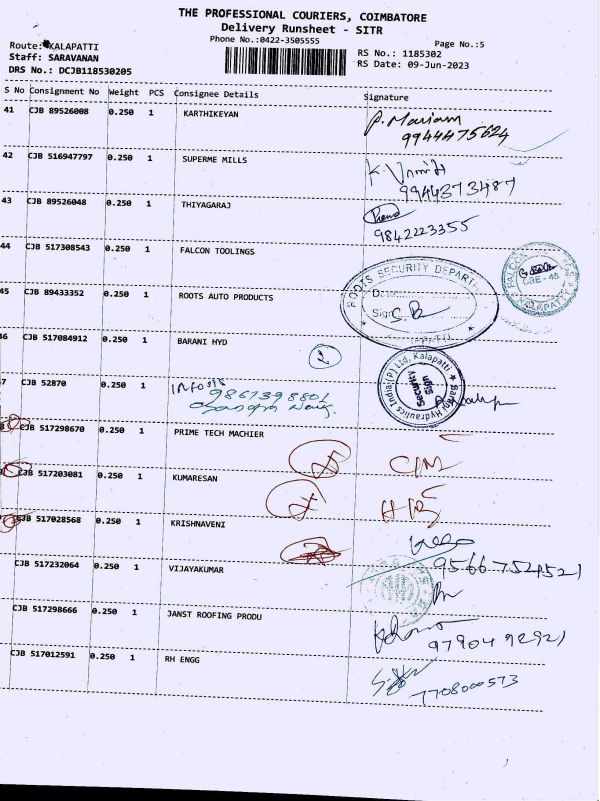 THE PROFESSIONAL COURIERS, COIMBATORE
Delivery Runsheet - SITR
Phone No.:0422-3505555
Page No.:5
Route: KALAPATTI
Staff: SARAVANAN
DRS No.: DCJB118530205
RS No.: 1185302
RS Date: 09-Jun-2023
S No Consignment No Weight PCS Consignee Details Signature
41 CJB 89526008 0.250 1 KARTHIKEYAN P. Mariam
9944475624
42 CJB 516947797 0.250 1 SUPERME MILLS
9944373487
43 CJB 89526048 0.250 1 THIYAGARAJ
9842223355
44 CJB 517308543 0.250 1 FALCON TOOLINGS
FALCON
CBE-48
KALAPATTI
45 CJB 89433352 0.250 1 ROOTS AUTO PRODUCTS
ROOTS SECURITY DEPARTM
Sign
46 CJB 517084912 0.250 1 BARANI HYD
Barani Hydraulics India (P) Ltd, Kalapatti
Security
Sign
7 CJB 52870 0.250 1 INFOSIS
9867398801
CJB 517298670 0.250 1 PRIME TECH MACHIER
CJB 517203081 0.250 1 KUMARESAN
CJB 517028568 0.250 1 KRISHNAVENI
CJB 517232064 0.250 1 VIJAYAKUMAR
95667524521
CJB 517298666 0.250 1 JANST ROOFING PRODU
9790492921
CJB 517012591 0.250 1 RH ENGG
7708000573